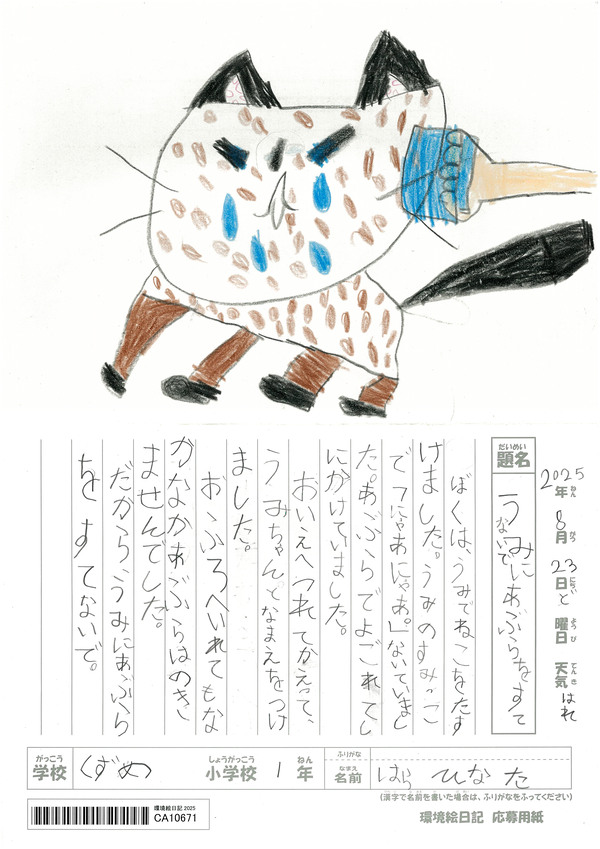 2025年ねん 8月がつ 23日にち ど曜日ようび 天気てんき はれ
題名だいめい うみにあぶらをすてないで
ぼくは、うみでねこをたす
けました。うみのすみっこ
で「にゃあにゃあ。」ないていまし
た。あぶらでよごれてし
にかけていました。
おいえへつれてかえって、
うみちゃんとなまえをつけ
ました。
おふろへいれてもな
かなかあぶらはのき
ませんでした。
だからうみにあぶら
をすてないで。
がっこう 学校 くずめ しょうがっこう 小学校 1 ねん 年
ふりがな
なまえ 名前 はら ひなた
(漢字で名前を書いた場合は、ふりがなをふってください)
環境絵日記 2025
CA10671
環境絵日記 応募用紙